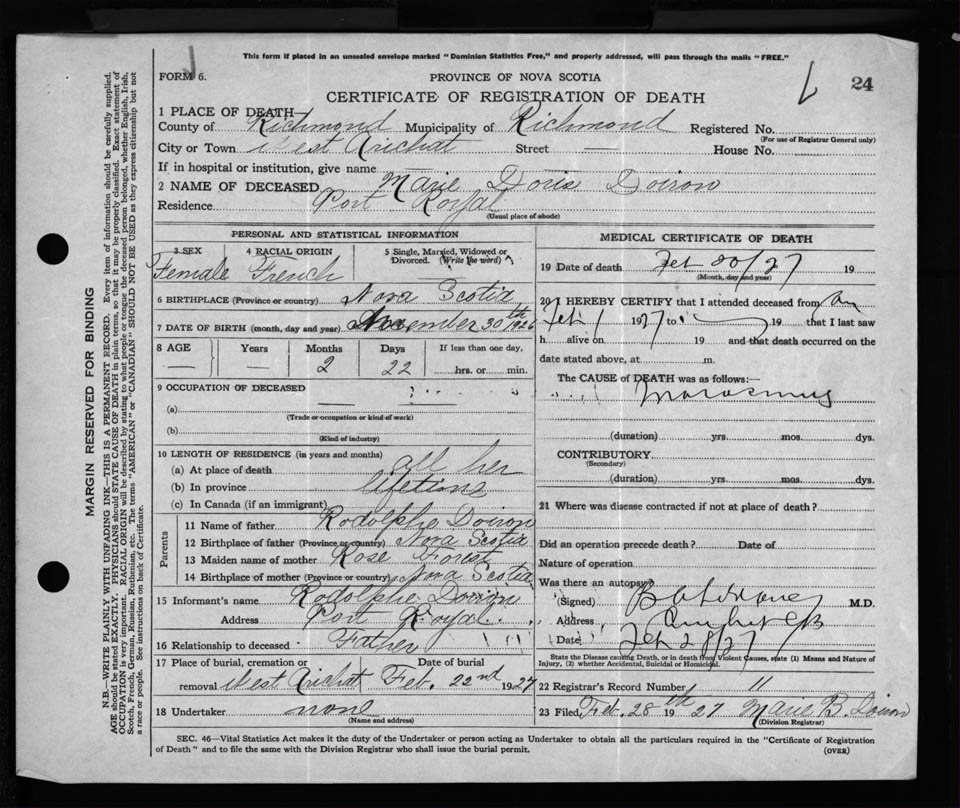 This form if placed in an unsealed envelope marked "Dominion Statistics Free," and properly addressed, will pass through the mails "FREE."
FORM 6.
PROVINCE OF NOVA SCOTIA
24
CERTIFICATE OF REGISTRATION OF DEATH
1 PLACE OF DEATH
County of Richmond Municipality of Richmond Registered No.
(For use of Registrar General only)
City or Town West Arichat Street — House No.
If in hospital or institution, give name
2 NAME OF DECEASED Marie Doris Doiron
Residence Port Royal
(Usual place of abode)
PERSONAL AND STATISTICAL INFORMATION
3 SEX 4 RACIAL ORIGIN 5 Single, Married, Widowed or Divorced. (Write the word)
Female French
6 BIRTHPLACE (Province or country) Nova Scotia
7 DATE OF BIRTH (month, day and year) November 30th 1926
8 AGE Years Months Days If less than one day,
— — 2 22 hrs. or min.
9 OCCUPATION OF DECEASED
(a) —
(Trade or occupation or kind of work)
(b)
(Kind of industry)
10 LENGTH OF RESIDENCE (in years and months)
(a) At place of death all her
(b) In province lifetime
(c) In Canada (if an immigrant)
Parents
11 Name of father Rodolphe Doiron
12 Birthplace of father (Province or country) Nova Scotia
13 Maiden name of mother Rose Forest
14 Birthplace of mother (Province or country) Nova Scotia
15 Informant's name Rodolphe Doiron
Address Port Royal
16 Relationship to deceased Father
17 Place of burial, cremation or removal West Arichat Date of burial Feb. 22nd 1927
18 Undertaker none
(Name and address)
MEDICAL CERTIFICATE OF DEATH
19 Date of death Feb 20/27 19
(Month, day and year)
20 I HEREBY CERTIFY that I attended deceased from on
Feb 1 1927 to 19 that I last saw
h alive on 19 and that death occurred on the
date stated above, at m.
The CAUSE of DEATH was as follows:—
Marasmus
(duration) yrs. mos. dys.
CONTRIBUTORY
(Secondary)
(duration) yrs. mos. dys.
21 Where was disease contracted if not at place of death?
Did an operation precede death? Date of
Nature of operation
Was there an autopsy?
(Signed) M.D.
Address
Date Feb 28/27
State the Disease causing Death, or in death from Violent Causes, state (1) Means and Nature of
Injury, (2) whether Accidental, Suicidal or Homicidal.
22 Registrar's Record Number 11
23 Filed Feb. 28th 1927 Marie B. Doiron
(Division Registrar)
SEC. 46—Vital Statistics Act makes it the duty of the Undertaker or person acting as Undertaker to obtain all the particulars required in the "Certificate of Registration
of Death" and to file the same with the Division Registrar who shall issue the burial permit.
(OVER)
MARGIN RESERVED FOR BINDING
N.B.—WRITE PLAINLY WITH UNFADING INK—THIS IS A PERMANENT RECORD. Every item of information should be carefully supplied.
AGE should be stated EXACTLY. PHYSICIANS should STATE CAUSE OF DEATH in plain terms, so that it may be properly classified. Exact statement of
OCCUPATION is very important. RACIAL ORIGIN will be described by stating to what people or tongue the deceased person belonged, whether English, Irish,
Scotch, French, German, Russian, Ruthenian, etc. The terms "AMERICAN" or "CANADIAN" SHOULD NOT BE USED as they express citizenship but not
a race or people. See instructions on back of Certificate.